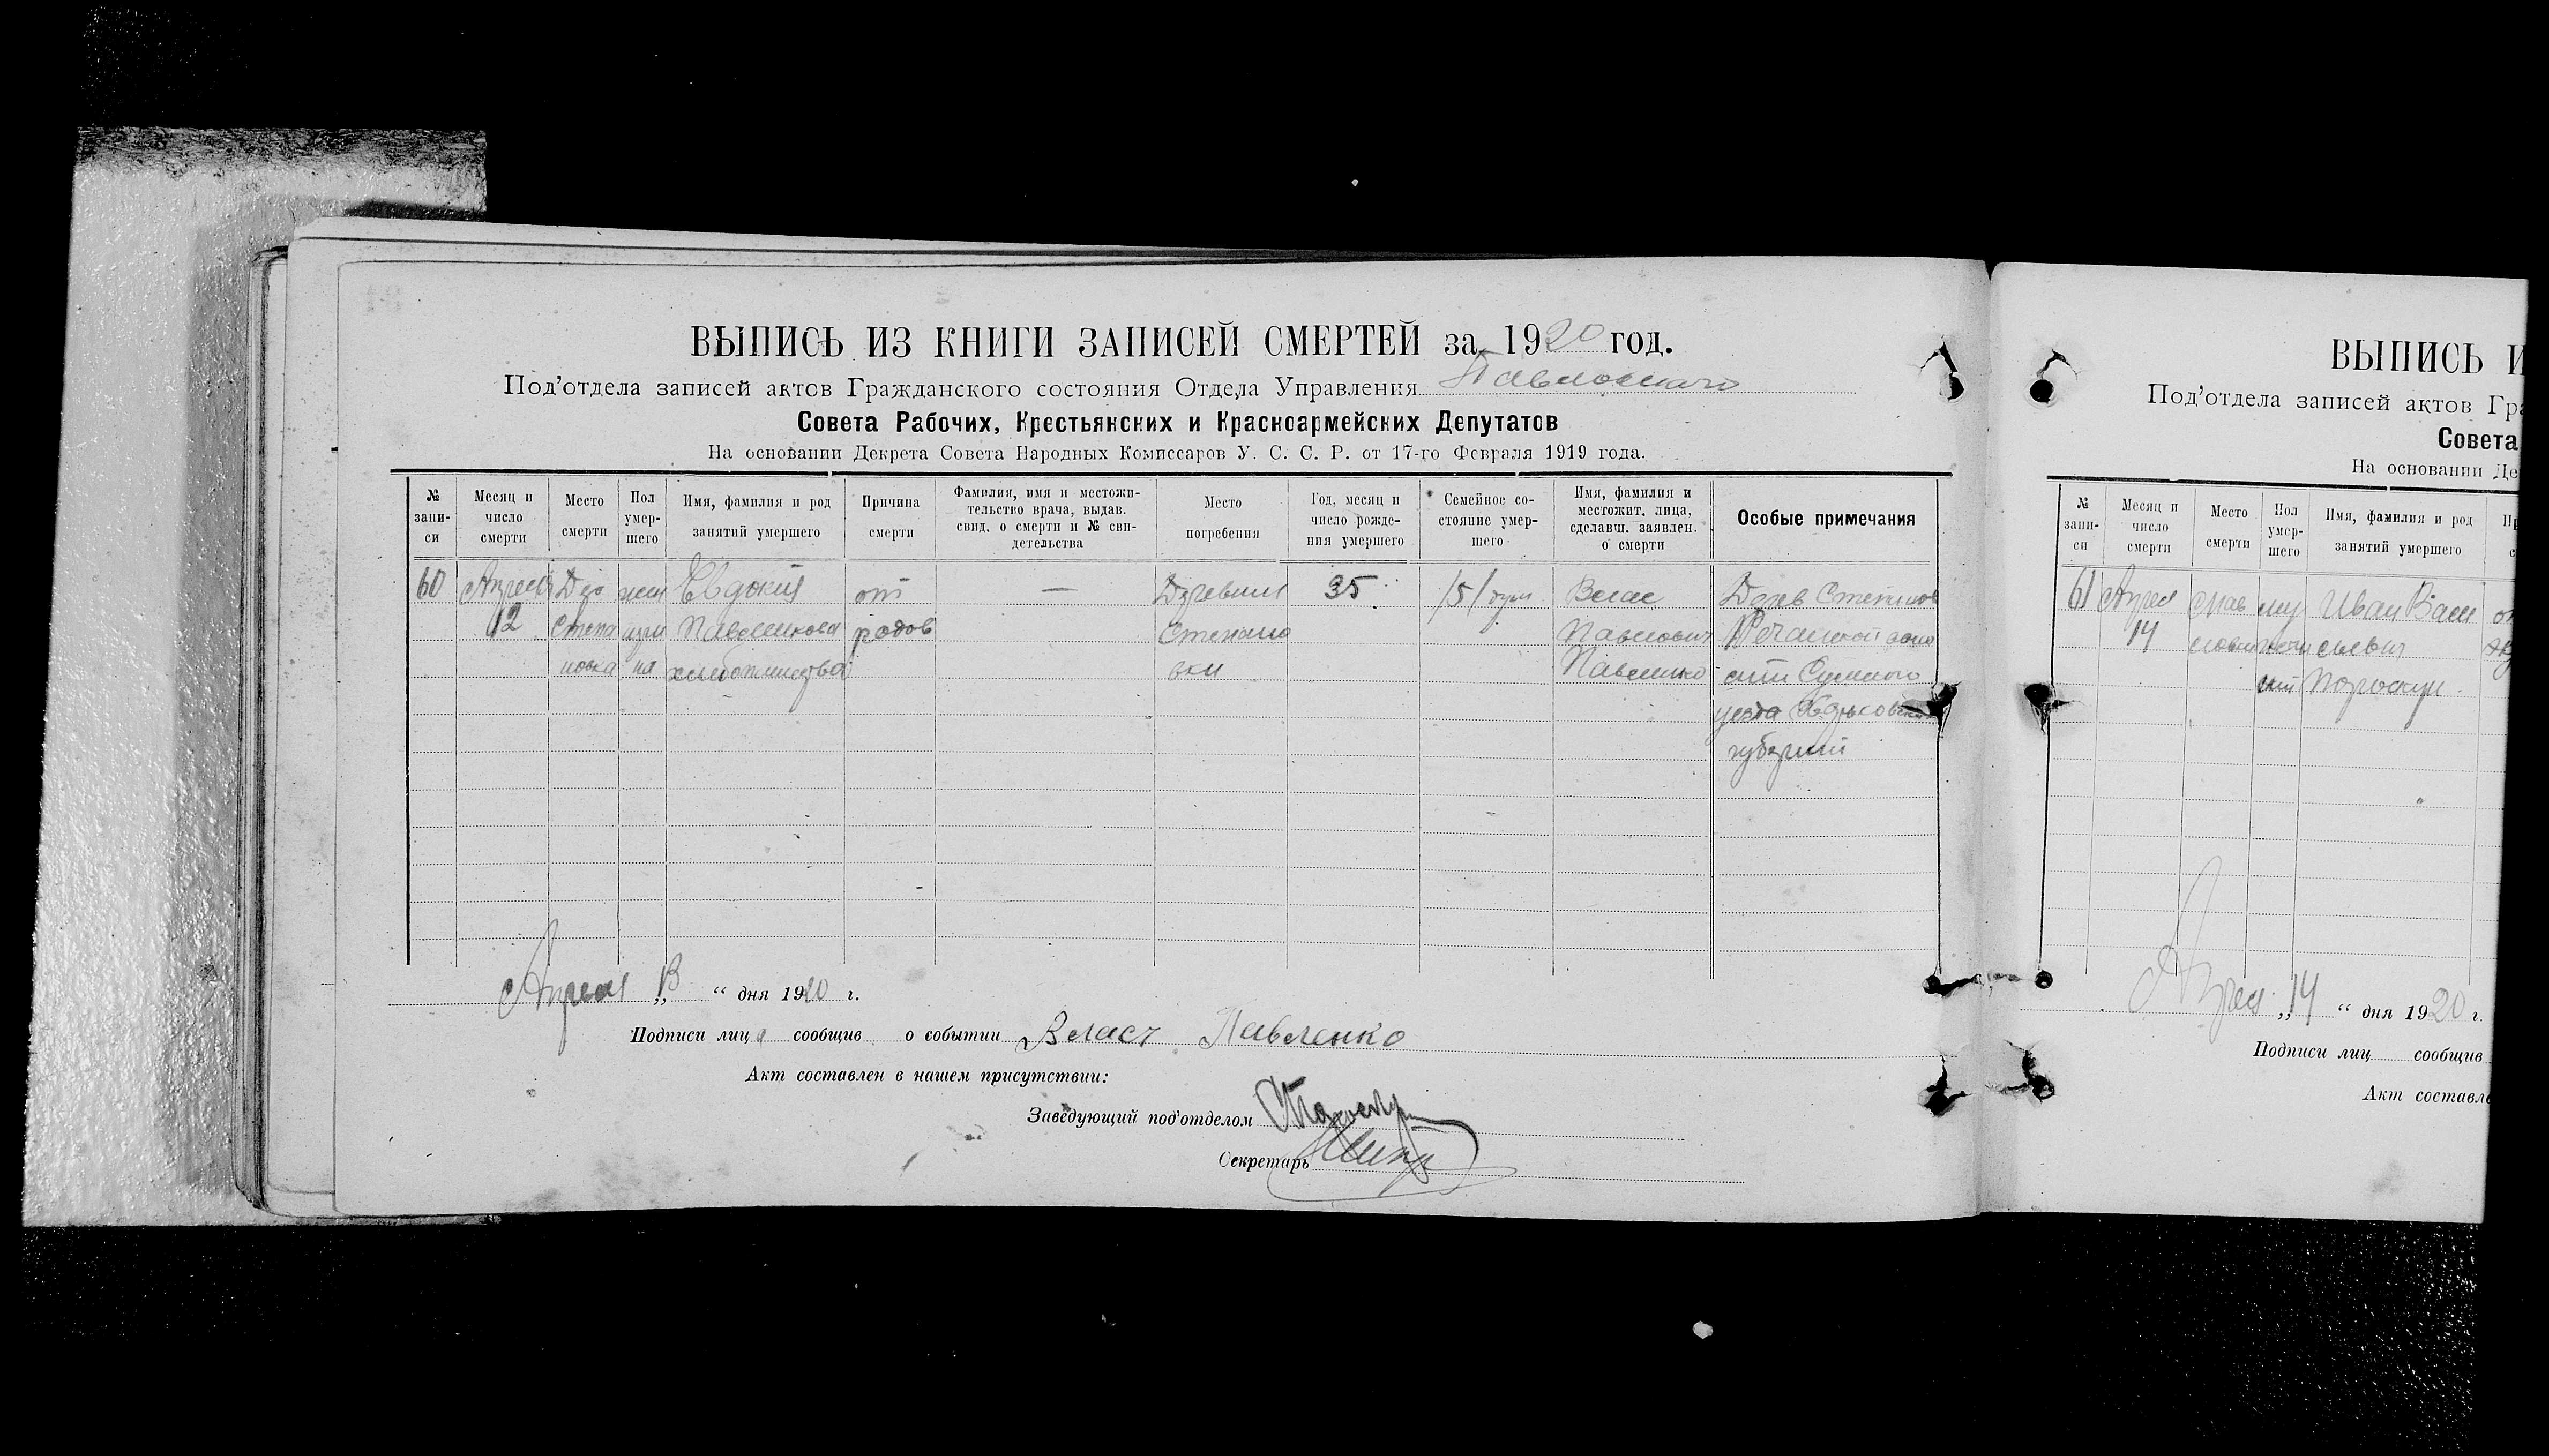 ВЫПИСЬ ИЗ КНИГИ ЗАПИСЕЙ СМЕРТЕЙ за 1920 год.
Под'отдела записей актов Гражданского состояния Отдела Управления
Совета Рабочих, Крестьянских и Красноармейских Депутатов
На основании Декрета Совета Народных Комиссаров У. С. С. Р. от 17-го Февраля 1919 года.
№ запи-си
Месяц и число смерти
Место смерти
Пол умер-шего
Имя, фамилия и род занятий умершего
Причина смерти
Фамилия, имя и местожи-тельство врача, выдав. свид. о смерти и № сви-детельства
Место погребения
Год, месяц и число рожде-ния умершего
Семейное со-стояние умер-шего
Имя, фамилия и местожит. лица, сделавш. заявлен. о смерти
Особые примечания
60 Апреля Дер жен Евдокия от — Деревни 35 /5/ душ Влас Дерев Степанов
12 Степа щи Павленкова родов Степано Павлович Речанской воло
новка на хлебопашества вки Павленко сти Сумского
уезда Харьковской
губернии
Апреля „13“ дня 1920 г.
Подписи лица сообщив о событии Власъ Павленко
Акт составлен в нашем присутствии:
Заведующий под'отделом
Секретарь
ВЫПИСЬ И
Под'отдела записей актов Гра
Совета
На основании Де
№ запи-си
Месяц и число смерти
Место смерти
Пол умер-шего
Имя, фамилия и род занятий умершего
61 Апрел Иван Васи
14 сьевич
„14“ дня 1920 г.
Подписи лиц сообщив
Акт составле